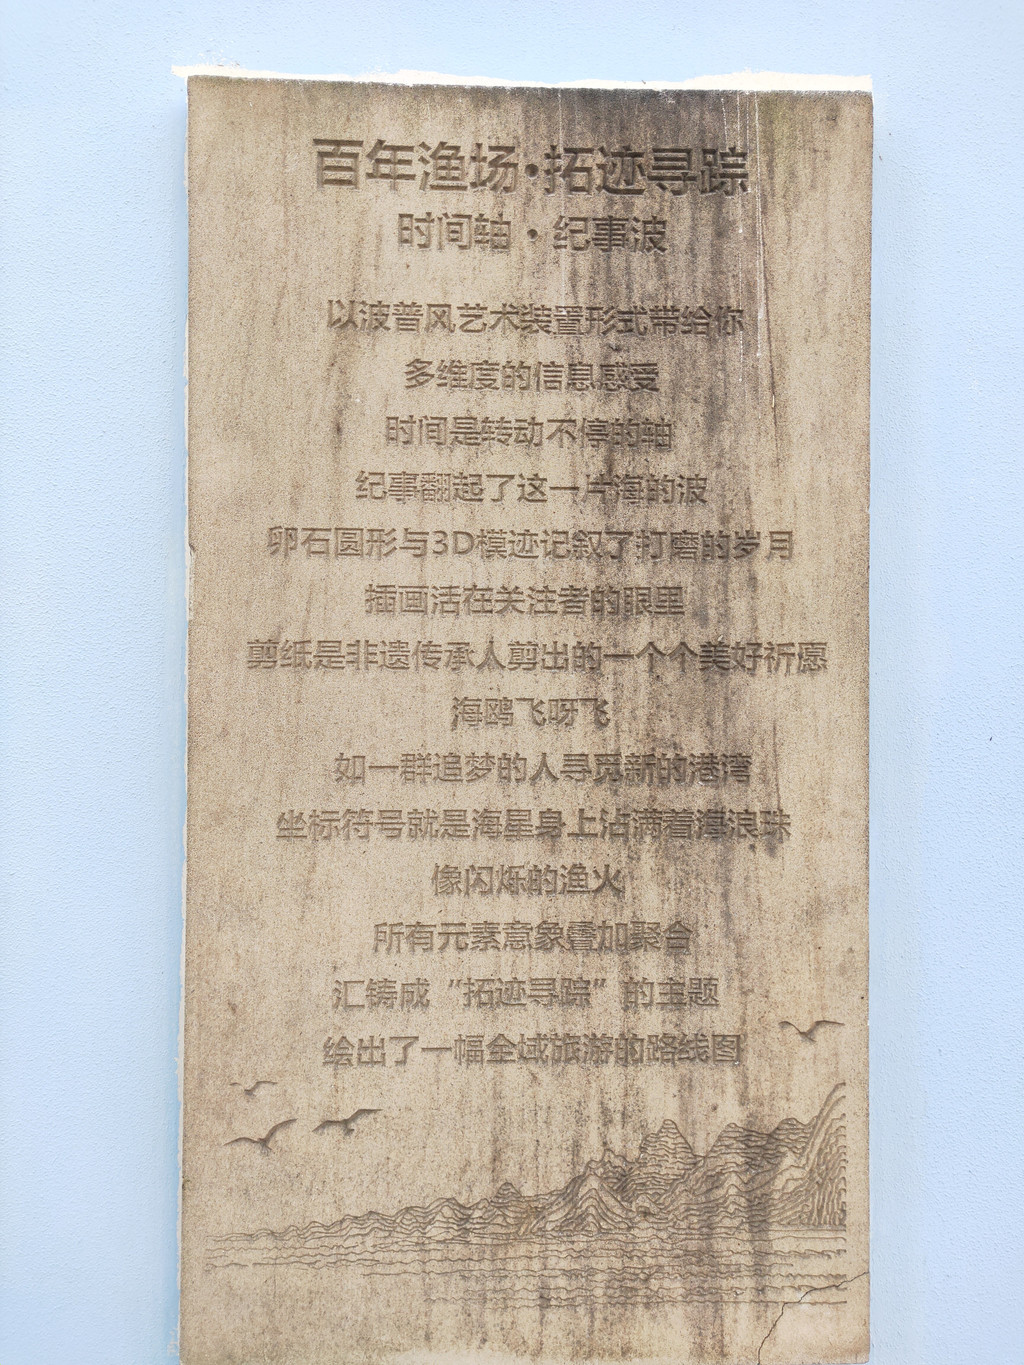 百年渔场·拓迹寻踪
时间轴·纪事波
以波普风艺术装置形式带给你
多维度的信息感受
时间是转动不停的轴
纪事翻起了这一片海的波
卵石圆形与3D模迹记叙了打磨的岁月
插画活在关注者的眼里
剪纸是非遗传承人剪出的一个个美好祈愿
海鸥飞呀飞
如一群追梦的人寻觅新的港湾
坐标符号就是海星身上沾满着海浪珠
像闪烁的渔火
所有元素意象叠加聚合
汇铸成“拓迹寻踪”的主题
绘出了一幅全域旅游的路线图